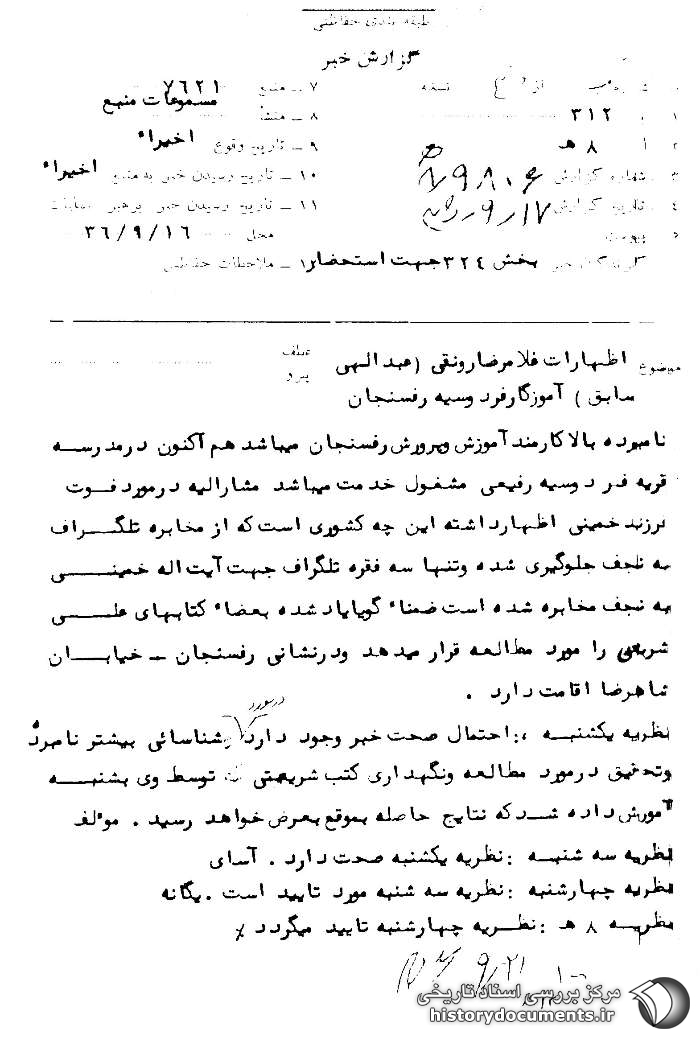 طبقه بندی حفاظتی
گزارش خبر
از نسخه
۳۱۲
۸ هـ
شماره گزارش ۸۹۸۰۶
تاریخ گزارش
پیوست
بخش ۳۲۴ جهت استحضار
۷ ـ منبع ۷۶۲۱
۸ ـ منشأ مسموعات منبع
۹ ـ تاریخ وقوع اخیراً
۱۰ ـ تاریخ رسیدن خبر به منبع اخیراً
۱۱ ـ تاریخ رسیدن خبر برهبر عملیات
محل ۳۶/۹/۱۶
ملاحظات حفاظتی
موضوع اظهارات غلامرضا رونقی (عبدالهی عطف
سابق) آموزگار فردوسیه رفسنجان پیرو
نامبرده بالا کارمند آموزش وپرورش رفسنجان میباشد هم اکنون درمدرسه
قریه فردوسیه رفیعی مشغول خدمت میباشد مشارالیه درمورد فوت
فرزند خمینی اظهارداشته این چه کشوری است که از مخابره تلگراف
به نجف جلوگیری شده وتنها سه فقره تلگراف جهت آیت اله خمینی
به نجف مخابره شده است ضمناً گویا یاد شده بعضاً کتابهای علی
شریعتی را مورد مطالعه قرار میدهد ودرنشانی رفسنجان ـ خیابان
شاهرضا اقامت دارد .
نظریه یکشنبه : احتمال صحت خبر وجود دارد درمورد شناسائی بیشتر نامبرده
وتحقیق درمورد مطالعه ونگهداری کتب شریعتی توسط وی بشنبه
آموزش داده شد که نتایج حاصله بموقع بعرض خواهد رسید . موءلف
نظریه سه شنبه : نظریه یکشنبه صحت دارد . آسای
نظریه چهارشنبه : نظریه سه شنبه مورد تایید است . یگانه
نظریه ۸ هـ : نظریه چهارشنبه تایید میگردد
۹/۲۱
مرکز بررسی اسناد تاریخی
historydocuments.ir